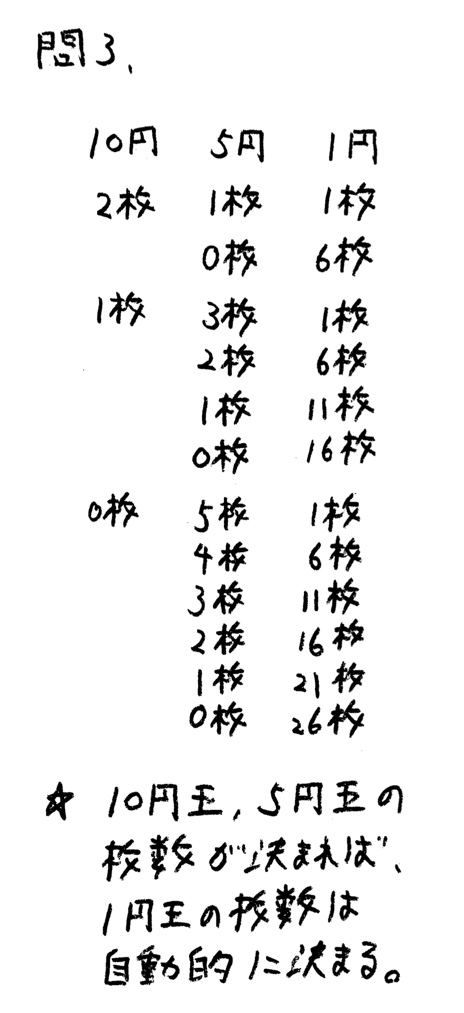 問3、
10円 5円 1円
2枚 1枚 1枚
0枚 6枚
1枚 3枚 1枚
2枚 6枚
1枚 11枚
0枚 16枚
0枚 5枚 1枚
4枚 6枚
3枚 11枚
2枚 16枚
1枚 21枚
0枚 26枚
☆ 10円玉, 5円玉の
枚数が決まれば、
1円玉の枚数は
自動的に決まる。